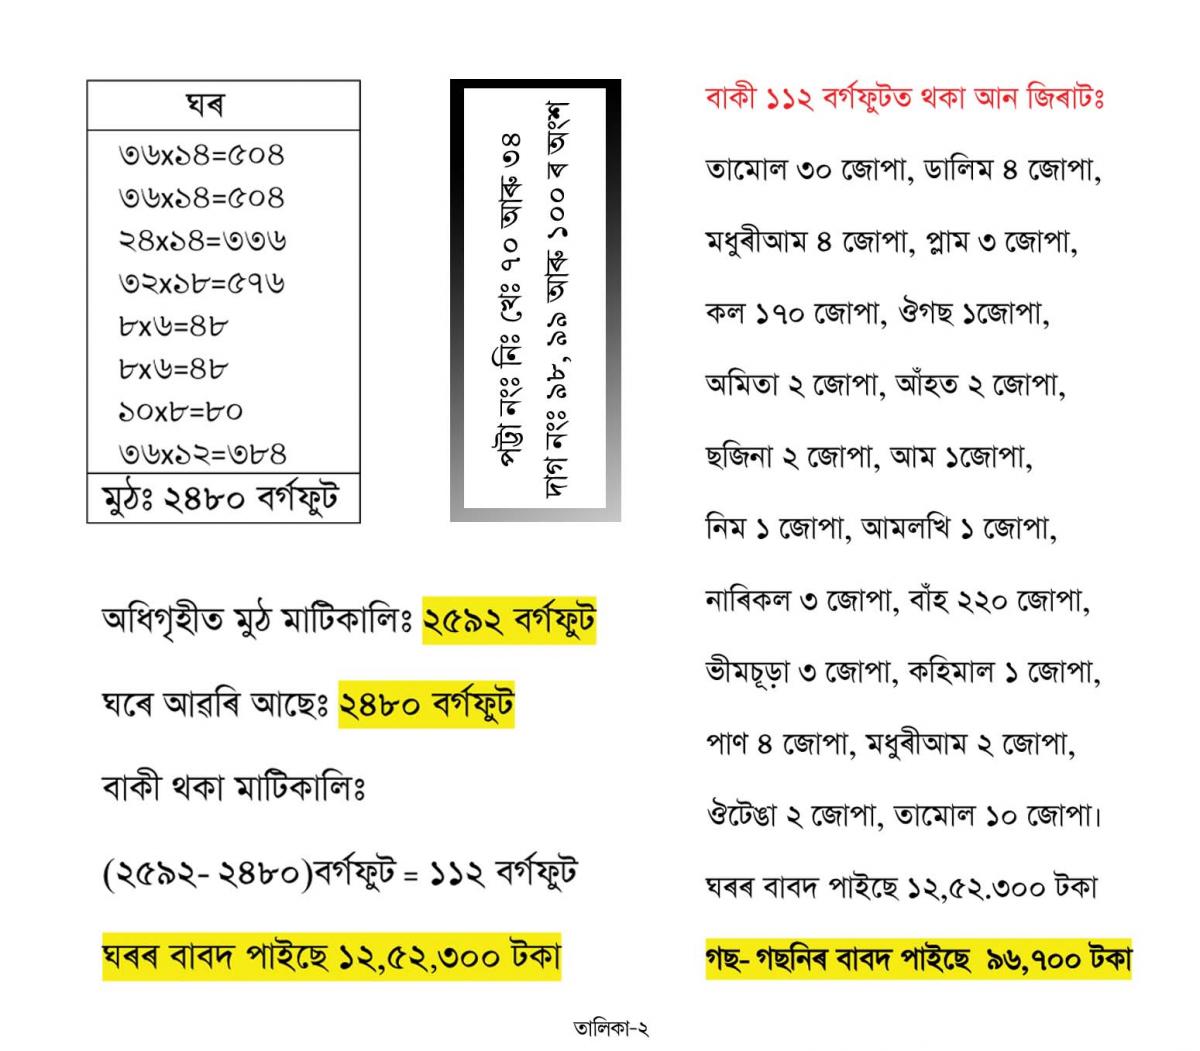 ঘৰ
৩৬x১৪=৫০৪
৩৬x১৪=৫০৪
২৪x১৪=৩৩৬
৩২x১৮=৫৭৬
৮x৬=৪৮
৮x৬=৪৮
১০x৮=৮০
৩৬x১২=৩৮৪
মুঠঃ ২৪৮০ বৰ্গফুট
পট্টা নংঃ নিঃ খেঃ ৭০ আৰু ৩৪
দাগ নংঃ ৯৮, ৯৯ আৰু ১০০ ৰ অংশ
অধিগৃহীত মুঠ মাটিকালিঃ ২৫৯২ বৰ্গফুট
ঘৰে আৱৰি আছেঃ ২৪৮০ বৰ্গফুট
বাকী থকা মাটিকালিঃ
(২৫৯২- ২৪৮০)বৰ্গফুট = ১১২ বৰ্গফুট
ঘৰৰ বাবদ পাইছে ১২,৫২,৩০০ টকা
বাকী ১১২ বৰ্গফুটত থকা আন জিৰাটঃ
তামোল ৩০ জোপা, ডালিম ৪ জোপা,
মধুৰীআম ৪ জোপা, প্লাম ৩ জোপা,
কল ১৭০ জোপা, ঔগছ ১জোপা,
অমিতা ২ জোপা, আঁহত ২ জোপা,
ছজিনা ২ জোপা, আম ১জোপা,
নিম ১ জোপা, আমলখি ১ জোপা,
নাৰিকল ৩ জোপা, বাঁহ ২২০ জোপা,
ভীমচূড়া ৩ জোপা, কহিমাল ১ জোপা,
পাণ ৪ জোপা, মধুৰীআম ২ জোপা,
ঔটেঙা ২ জোপা, তামোল ১০ জোপা।
ঘৰৰ বাবদ পাইছে ১২,৫২.৩০০ টকা
গছ- গছনিৰ বাবদ পাইছে ৯৬,৭০০ টকা
তালিকা-২